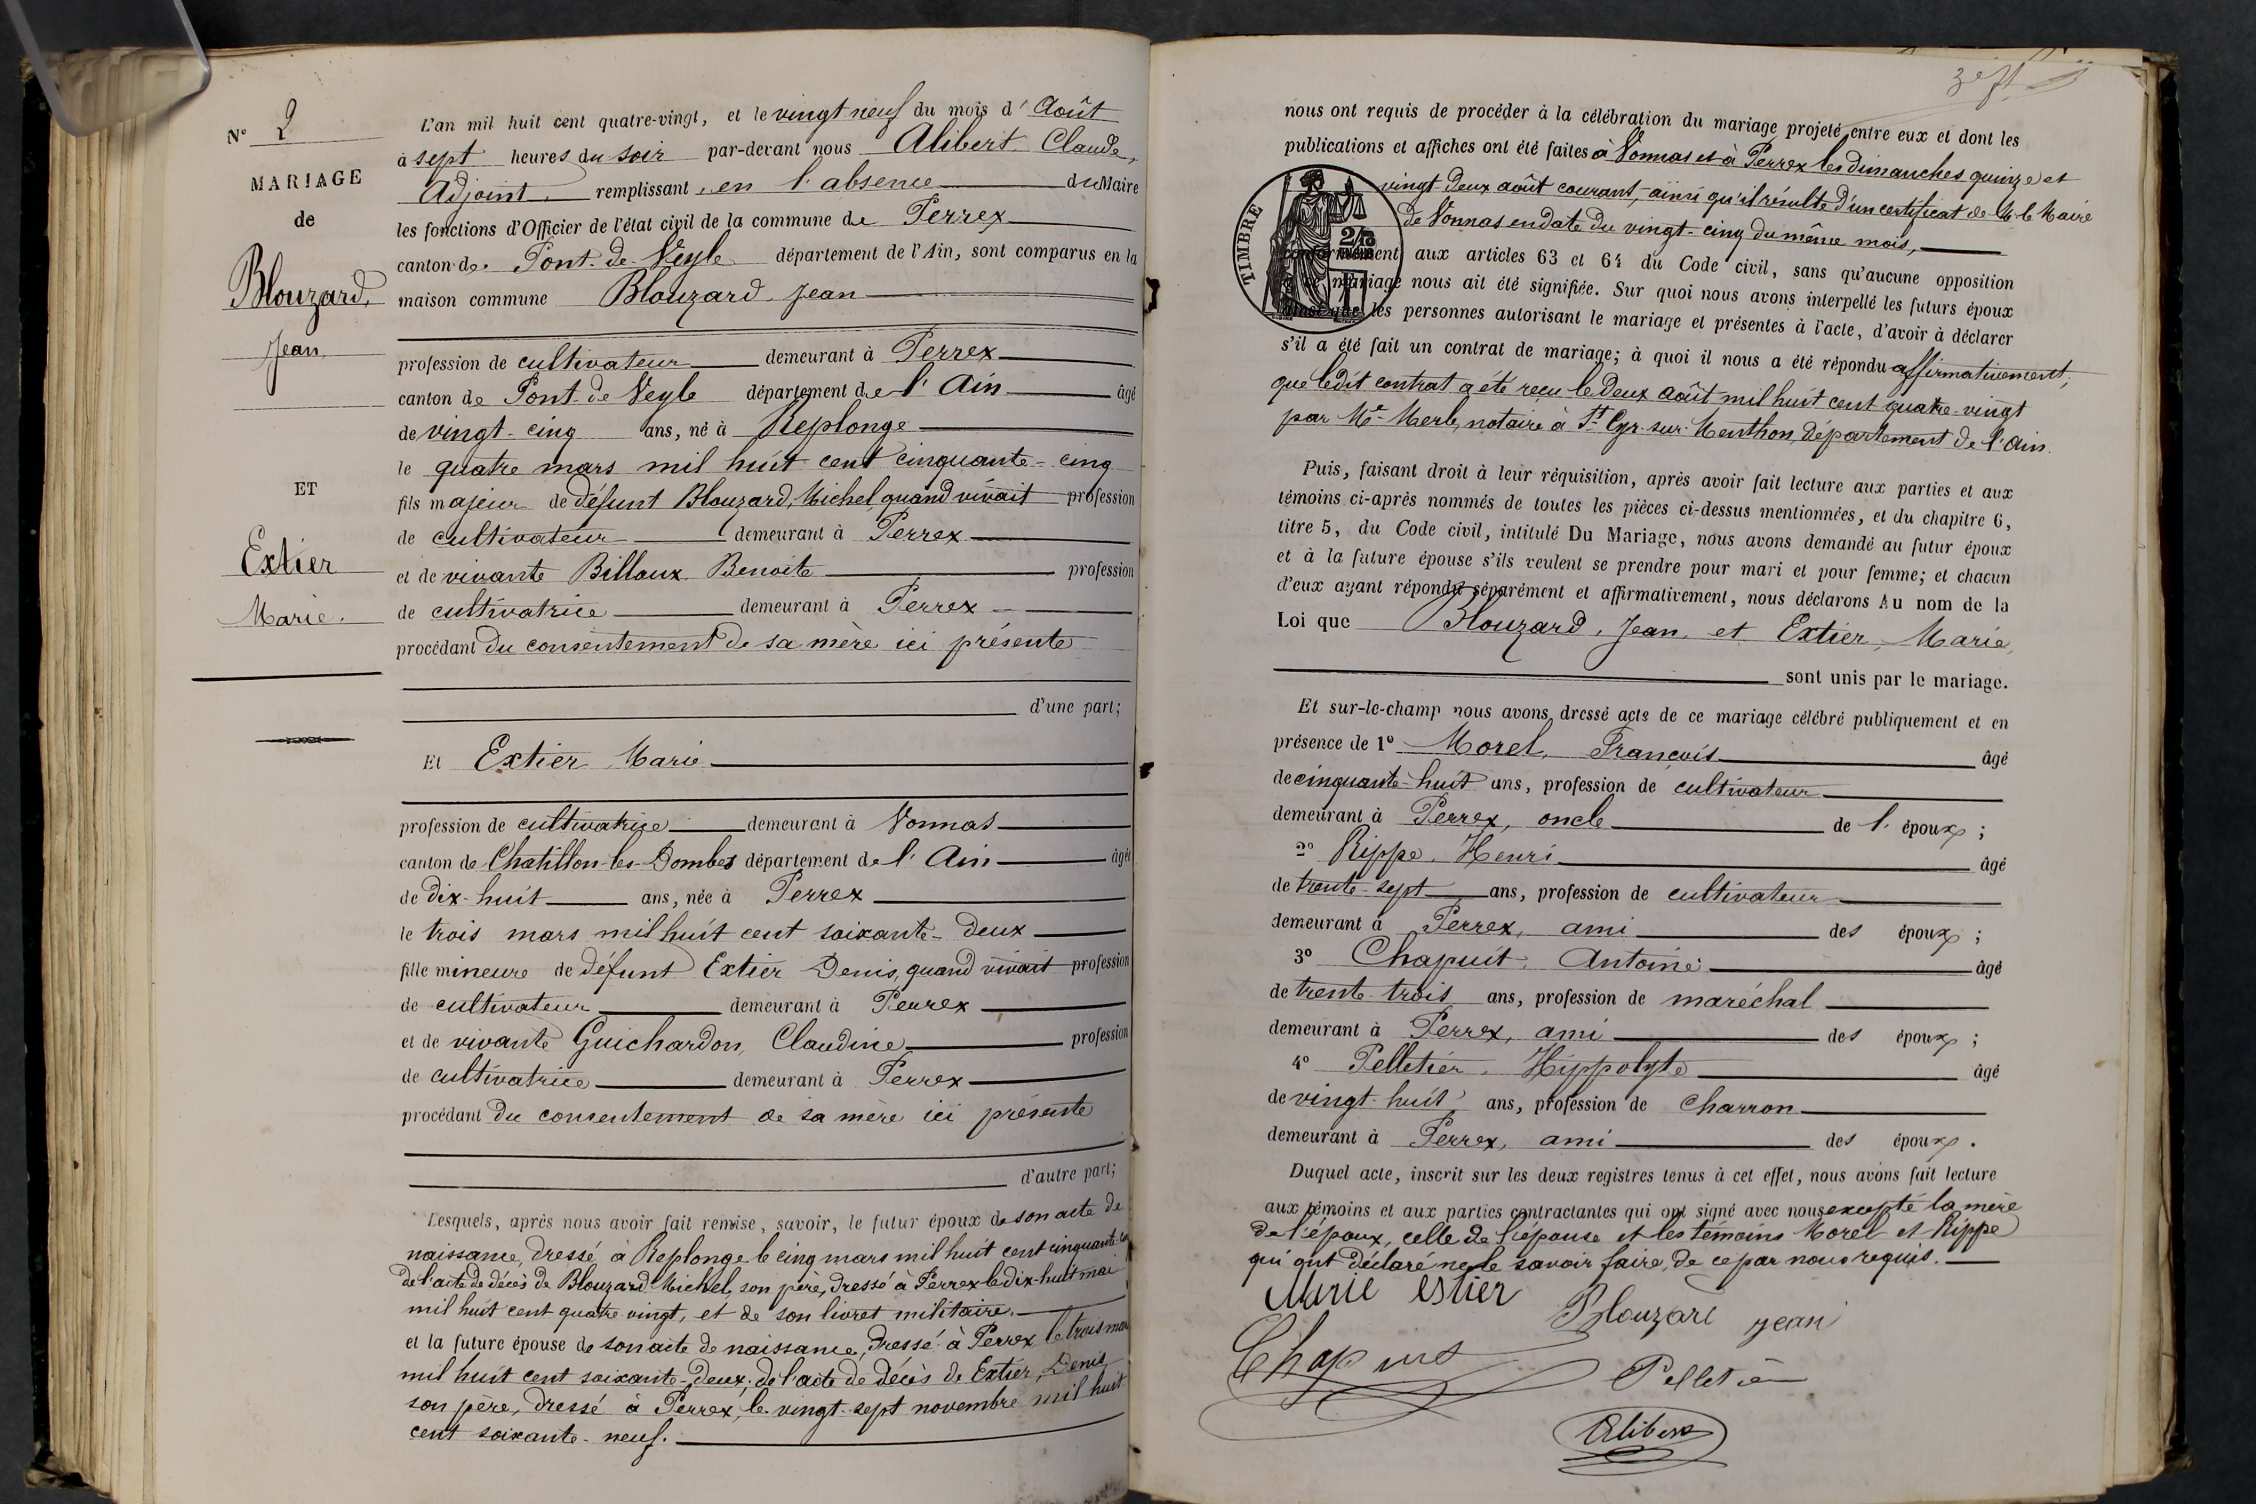 N° 2
MARIAGE
de
Blouzard,
Jean
ET
Extier
Marie.
L'an mil huit cent quatre-vingt, et le vingt neuf du mois d'Août
à sept heures du soir par-devant nous Alibert Claude,
Adjoint, remplissant en l'absence du Maire
les fonctions d'Officier de l'état civil de la commune de Perrex
canton de Pont-de-Veyle département de l'Ain, sont comparus en la
maison commune Blouzard Jean
profession de cultivateur demeurant à Perrex
canton de Pont-de Veyle département de l'Ain âgé
de vingt-cinq ans, né à Replonge
le quatre mars mil huit cent cinquante-cinq
fils majeur de défunt Blouzard, Michel, quand vivait profession
de cultivateur demeurant à Perrex
et de vivante Billoux Benoite profession
de cultivatrice demeurant à Perrex
procédant du consentement de sa mère ici présente
d'une part;
Et Extier Marie
profession de cultivatrice demeurant à Vonnas
canton de Chatillon-les-Dombes département de l'Ain âgée
de dix-huit ans, née à Perrex
le trois mars mil huit cent soixante-deux
fille mineure de défunt Extier Denis, quand vivait profession
de cultivateur demeurant à Perrex
et de vivante Guichardon, Claudine profession
de cultivatrice demeurant à Perrex
procédant du consentement de sa mère ici présente
d'autre part;
Lesquels, après nous avoir fait remise, savoir, le futur époux de son acte de
naissance, dressé à Replonge le cinq mars mil huit cent cinquante-
de l'acte de décès de Blouzard Michel, son père, dressé à Perrex le dix-huit mai
mil huit cent quatre vingt, et de son livret militaire.
et la future épouse de son acte de naissance, dressé à Perrex le trois mars
mil huit cent soixante-deux; de l'acte de décès de Extier, Denis
son père, dressé à Perrex, le vingt-sept novembre mil huit
cent soixante-neuf.
nous ont requis de procéder à la célébration du mariage projeté entre eux et dont les
publications et affiches ont été faites à Vonnas et à Perrex les dimanches quinze et
vingt deux août courant, ainsi qu'il résulte d'un certificat de M. le Maire
de Vonnas en date du vingt-cinq du même mois,
TIMBRE
conformément aux articles 63 et 64 du Code civil, sans qu'aucune opposition
mariage nous ait été signifiée. Sur quoi nous avons interpellé les futurs époux
ainsi que les personnes autorisant le mariage et présentes à l'acte, d'avoir à déclarer
s'il a été fait un contrat de mariage; à quoi il nous a été répondu affirmativement,
que ledit contrat a été reçu le deux août mil huit cent quatre-vingt
par Me Merle, notaire à St Cyr-sur-Menthon, département de l'Ain.
Puis, faisant droit à leur réquisition, après avoir fait lecture aux parties et aux
témoins ci-après nommés de toutes les pièces ci-dessus mentionnées, et du chapitre 6,
titre 5, du Code civil, intitulé Du Mariage, nous avons demandé au futur époux
et à la future épouse s'ils veulent se prendre pour mari et pour femme; et chacun
d'eux ayant répondu séparément et affirmativement, nous déclarons Au nom de la
Loi que Blouzard, Jean, et Extier, Marie,
sont unis par le mariage.
Et sur-le-champ nous avons dressé acte de ce mariage célébré publiquement et en
présence de 1° Morel, François âgé
de cinquante-huit ans, profession de cultivateur
demeurant à Perrex, oncle de l'époux;
2° Rippe, Henri âgé
de trente-sept ans, profession de cultivateur
demeurant à Perrex, ami des époux;
3° Chapuit, Antoine âgé
de trente-trois ans, profession de maréchal
demeurant à Perrex, ami des époux;
4° Pelletier, Hippolyte âgé
de vingt-huit ans, profession de charron
demeurant à Perrex, ami des époux.
Duquel acte, inscrit sur les deux registres tenus à cet effet, nous avons fait lecture
aux témoins et aux parties contractantes qui ont signé avec nous excepté la mère
de l'époux, celle de l'épouse et les témoins Morel et Rippe
qui ont déclaré ne le savoir faire, de ce par nous requis.
Marie estier
Blouzard jean
Pelletier
Alibert